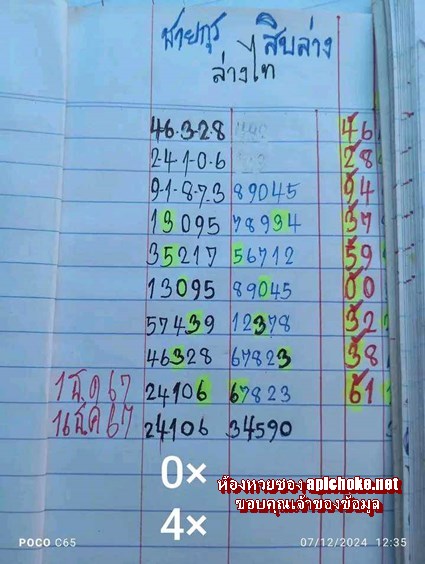 ชายกรุ สิบล่าง
ล่างไท
46-3-28 46
241-0-6 28
91-8-7-3 89045 94
13095 78934 37
35217 56712 59
13095 89045 00
57439 12378 32
46328 67823 38
1 ธ.ค 67 24106 67823 61
16 ธ.ค 67 24106 34590
0×
4×
ห้องหวยซอง apichoke.net
ขอบคุณเจ้าของข้อมูล
POCO C65 07/12/2024 12:35